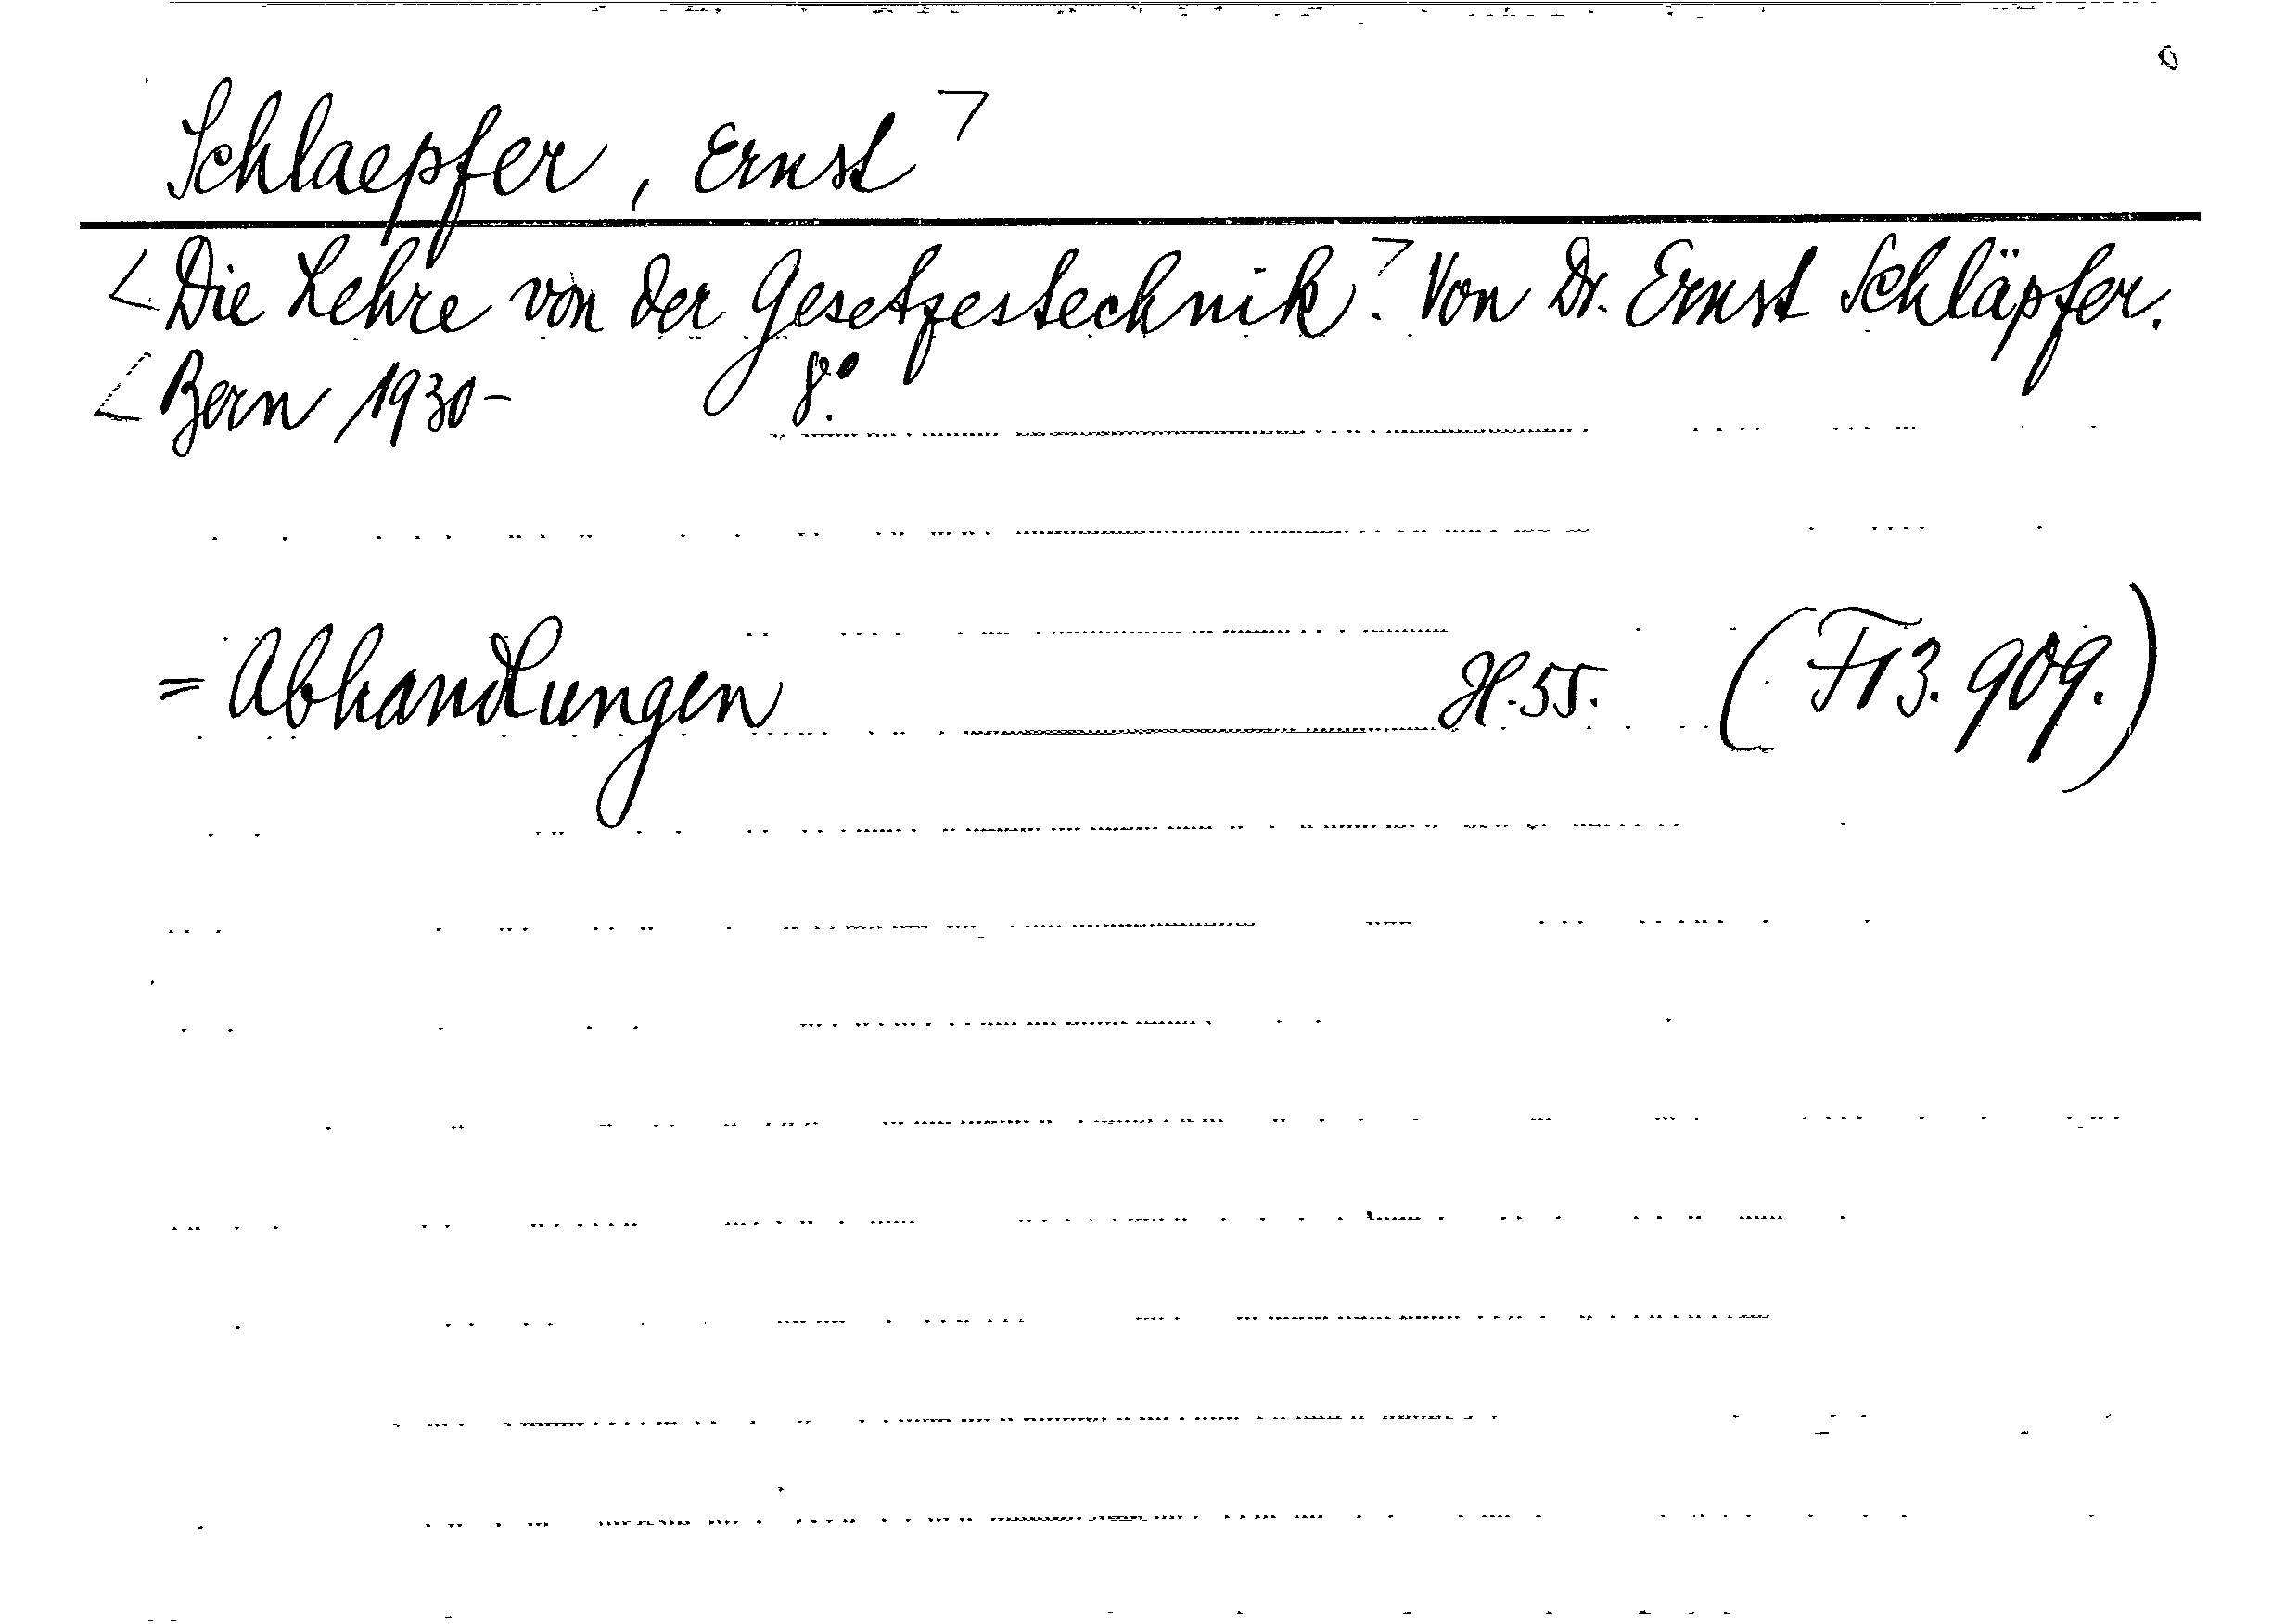 Schlaepfer, Ernst
Die Lehre von der Gesetzestechnik. Von Dr. Ernst Schläpfer.
Bern 1930- 8°.
= Abhandlungen H.55. (F13.909.)